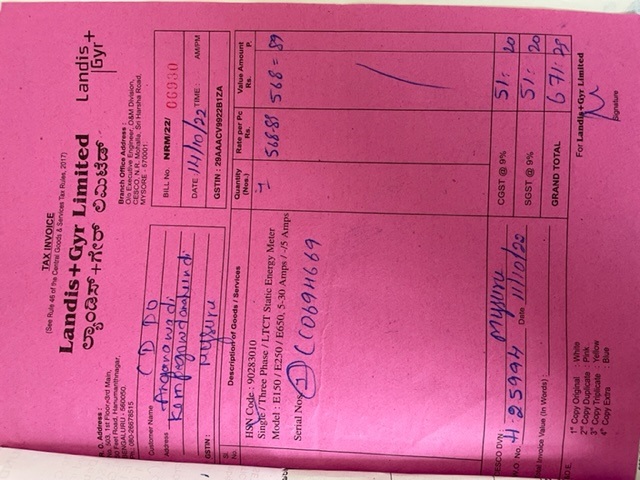 TAX INVOICE
(See Rule 46 of the Central Goods & Services Tax Rules, 2017)
Landis+Gyr Limited
ಲ್ಯಾಂಡಿಸ್+ಗೇರ್ ಲಿಮಿಟೆಡ್
Landis+
Gyr
503, 1st Floor, 3rd Main,
Feet Road, Hanumanthnagar,
BENGALURU - 560050.
080-26678515
Branch Office Address :
C/o Executive Engineer, O&M Division,
CESCO, N.R. Mohalla, Sri Harsha Road,
MYSORE - 570001.
Customer Name CDPO
Address Anganawadi
Mysuru
GSTIN :
BILL No. NRM/22/ 06930
DATE 14/10/22 TIME : AM/PM
GSTIN : 29AAACV9922B1ZA
Sl. No. Description of Goods / Services Quantity (Nos.) Rate per Pc Rs. Value Amount Rs. P.
HSN Code : 90283010
Single / Three Phase / LTCT Static Energy Meter
Model : E150 / E250 / E650, 5-30 Amps / -/5 Amps
1 568-89 568=89
Serial Nos. 1 CC0694669
CESCO DVN. Mysuru CGST @ 9% 51: 20
W.O. No. H:25994 Date 11/10/22 SGST @ 9% 51: 20
Total Invoice Value (In Words) : GRAND TOTAL 671: 29
1st Copy Original : White
2nd Copy Duplicate : Pink
3rd Copy Triplicate : Yellow
4th Copy Extra : Blue
For Landis+Gyr Limited
Signature